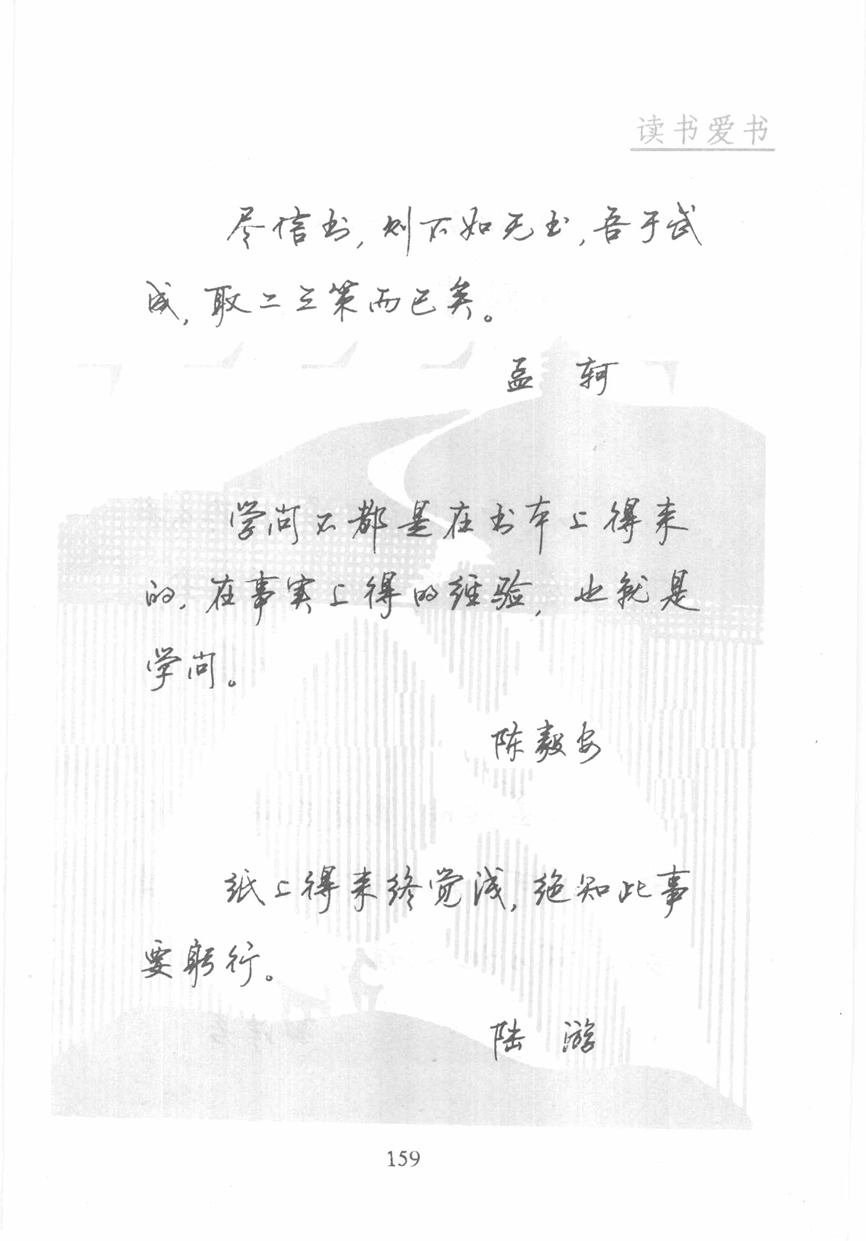 读书爱书
尽信书,则不如无书,吾于武
成,取二三策而已矣。
孟 轲
学问不都是在书本上得来
的,在事实上得的经验,也就是
学问。
陈毅安
纸上得来终觉浅,绝知此事
要躬行。
陆 游
159